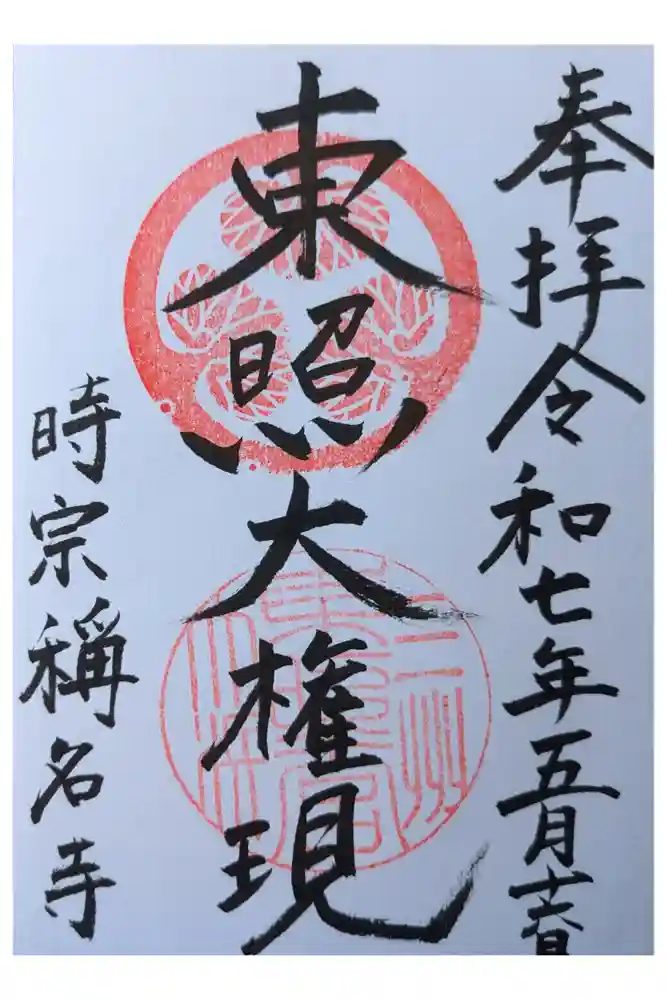 奉拝 令和七年五月
東照大権現
時宗 稱名寺